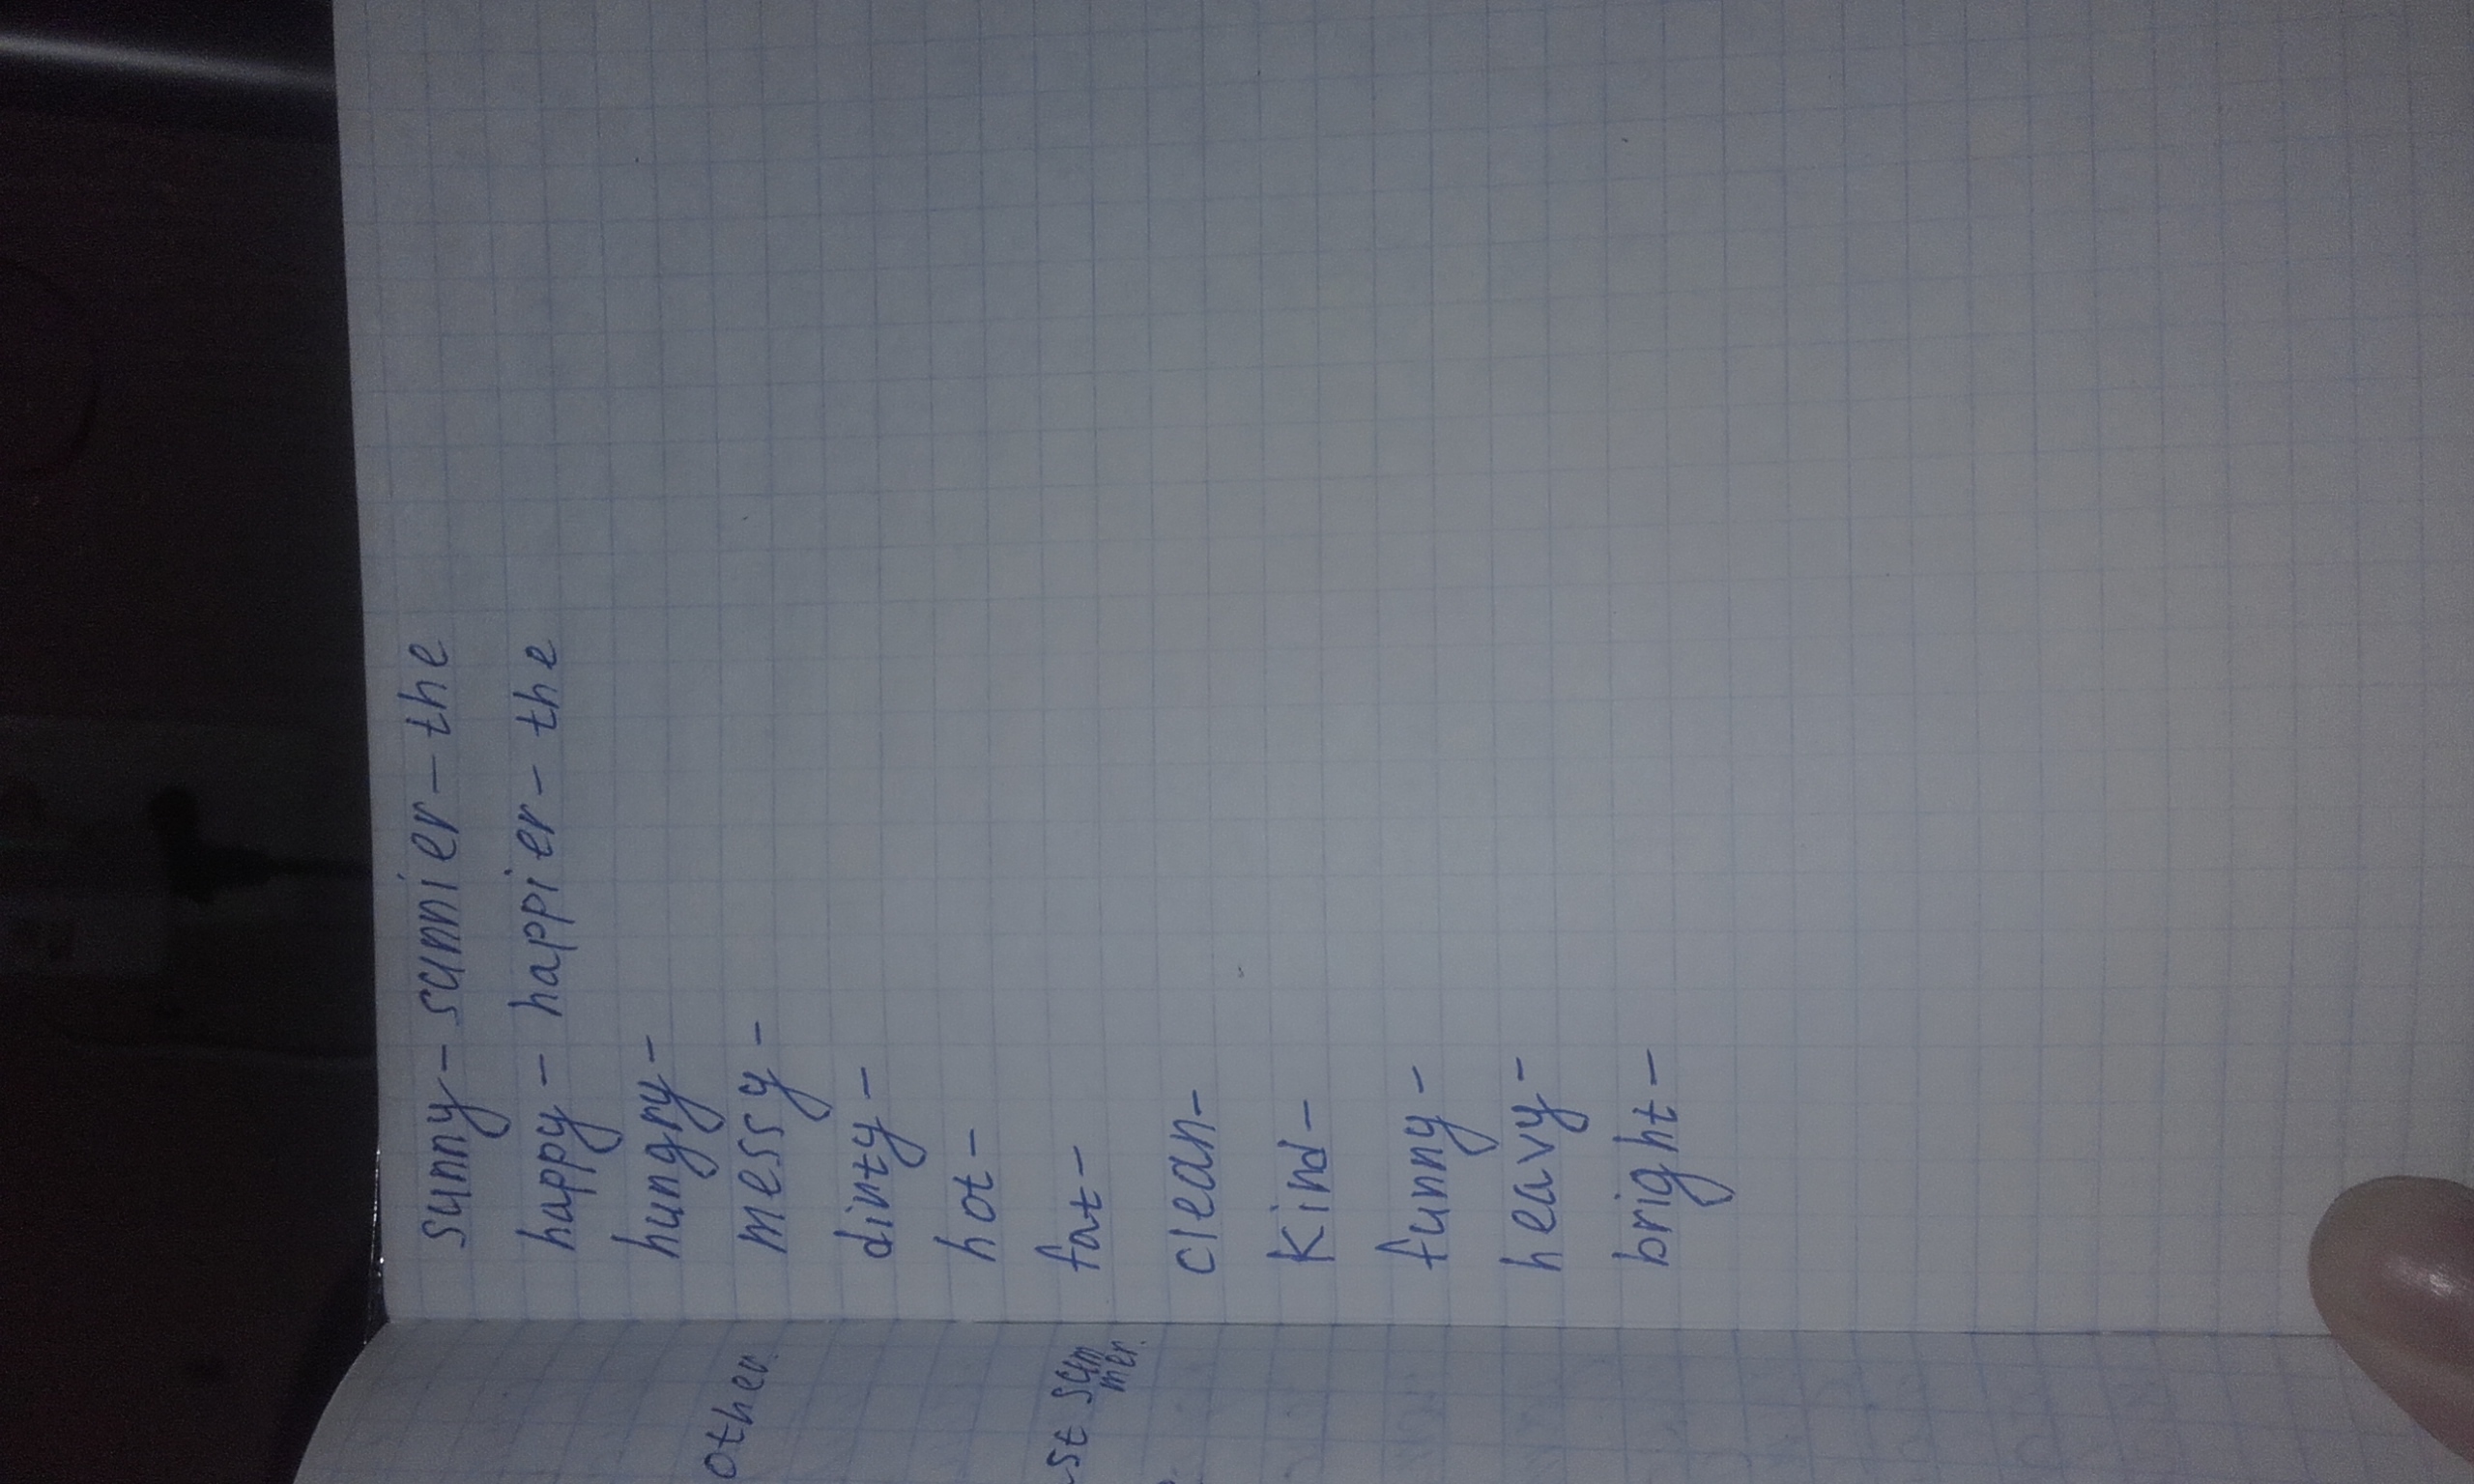 sunny - sunnier - the
happy - happier - the
hungry -
messy -
dirty -
hot -
fat -
clean -
kind -
funny -
heavy -
bright -
other.
st sum
mer.